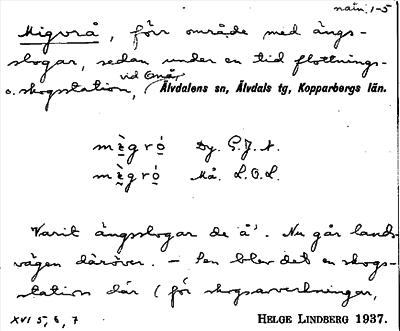 näm. 1-5
Migvrå, förr område med ängs-
slogar, sedan under en tid flottnings-
o. skogsstation, vid Emån Älvdalens sn, Älvdals tg, Kopparbergs län.
mègró Dy. G.J.A.
mègró Må. L.O.L.
Varit ängslogar de å'. Nu går lands-
vägen däröver. — Sen blev det en skogs-
station där (för skogsavverkningar,
XVI 5, 6, 7 HELGE LINDBERG 1937.